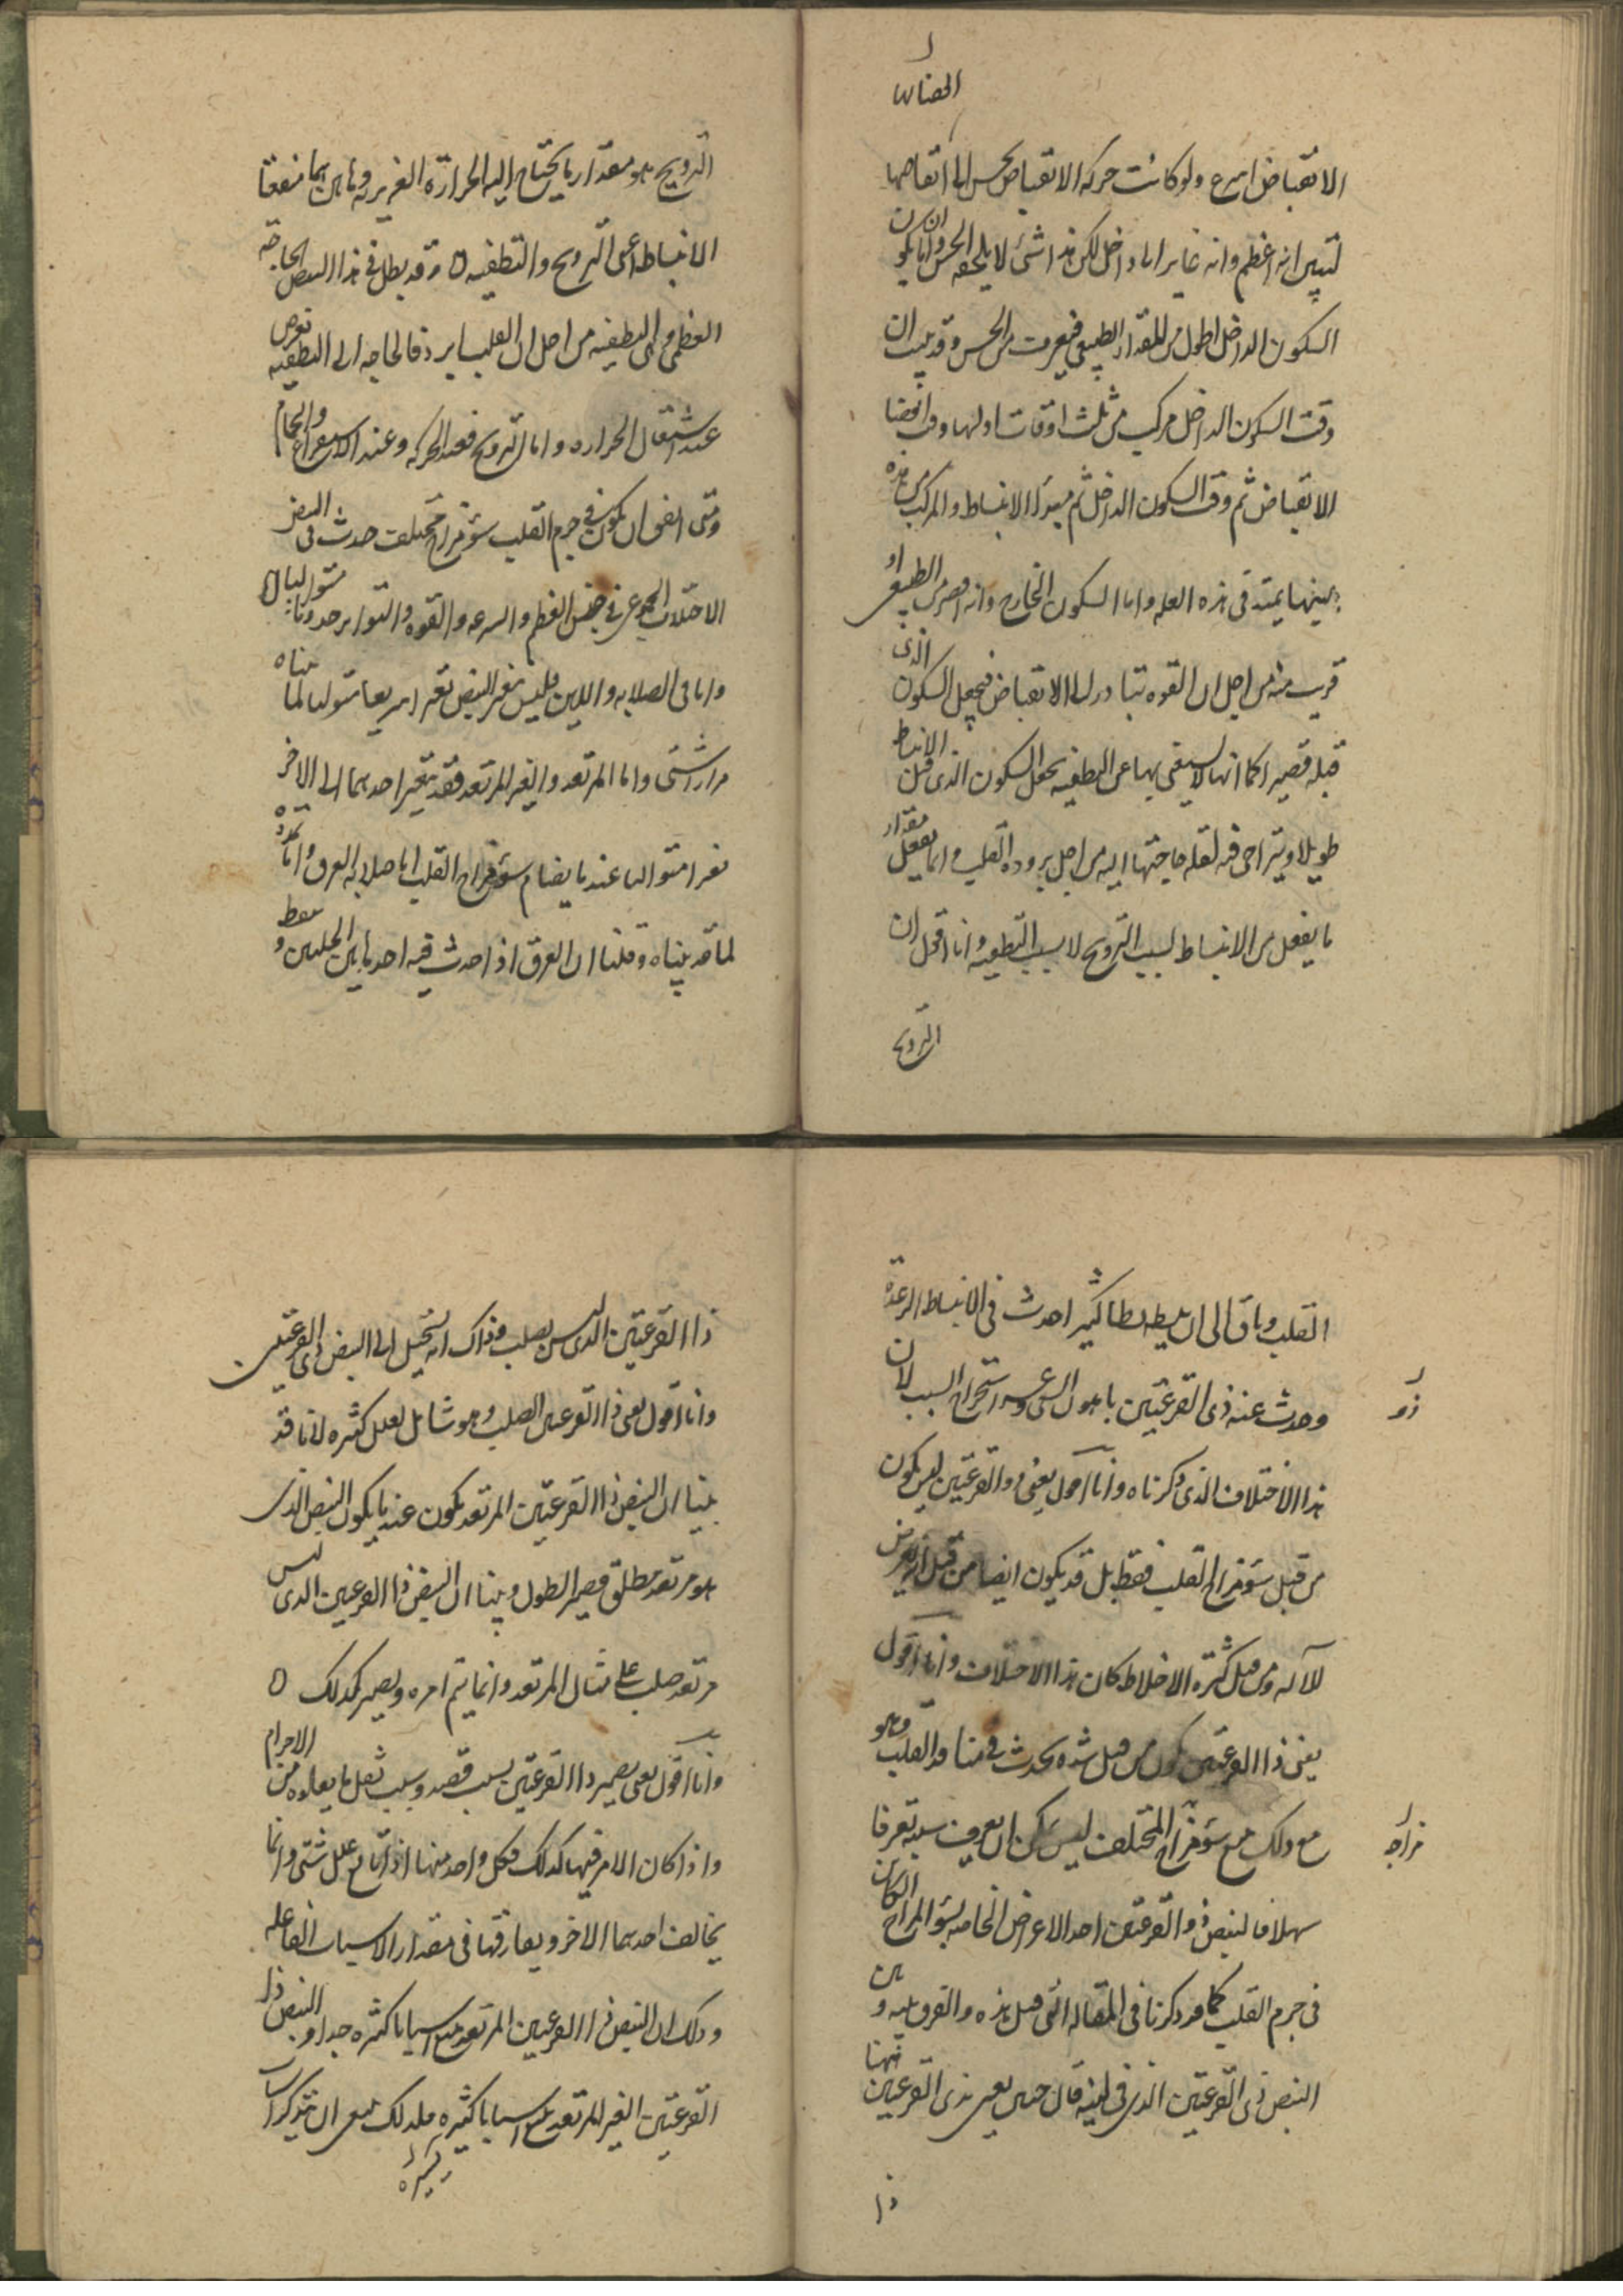 انقضاءها
الانقباض اسرع ولو كانت حركة الانقباض يحس الى انقضاءها
لتبين انه اعظم وانه غاير الى داخل لكن هذا شئ لا يلحقه الحس واما ان يكون
السكون الداخل اطول من المقدار الطبيعى فيعرف من الحس وقد يجب ان
وقت السكون الداخل مركب من ثلث اوقات اولها وقت انقضا
الانقباض ثم وقت السكون الداخل ثم مبدؤ الانبساط والمركب من هذه
بعينها يمتد فى هذه العله واما السكون الخارج فانه اقصر من الطبيعى او
قريب منه من اجل ان القوه تبادر الى الانقباض فيجعل السكون الذى
قبله قصيرا كما انها لا يبقى بها عن التطفيه يجعل السكون الذى قبل الانبساط
طويلا ويتراخى فيه لقله حاجتها اليه من اجل بروده القلب وانما يفعل مقدار
ما يفعل من الانبساط لسبب الترويح لا بسبب التطفيه وانا اقول ان
الترويح
الترويح هو مقدار ما يحتاج اليه الحرارة الغريزيه وهاهن هما منفعتا
الانبساط اعنى الترويح والتطفيه ه وقد يطل فى هذا النبض الحاجه
العظمى الى التطفيه من اجل ان القلب بارد فالحاجه الى التطفيه تعرض
عند اشتعال الحراره واما الترويح فعند الحركه وعند الاستفراغ والحمام
ومتى اتفق ان يكون فى جرم القلب سؤ مزاج مختلف حدث فى النبض
الاختلاف الجموعى فى جنس العظم والسرعه والقوه والتواتر حدوثا متواليا ه
واما فى الصلابه واللين فليس تغير النبض تغيرا سريعا متواليا لما بيناه
مرارا شتى واما المرتعد والغير المرتعد فقد يتغير احدهما الى الاخر
تغيرا متواليا عندما يضام سؤ مزاج القلب اما صلابه العرق واما تمدده
لما قد بيناه وقلنا ان العرق اذا حدث فيه احد هاتين الحالتين وضغط
القلب وتاق الى ان يبسطه بسطا كثيرا حدث فى الانبساط الرعدة
وحدث عنه ذى القرعتين باهول السعى وعسر استخراج السبب لان
ذو
هذا الاختلاف الذى ذكرناه وانا اقول يعنى ذو القرعتين ليس يكون
من قبل سؤ مزاج القلب فقط بل قد يكون ايضا من قبل انه يعرض
للآله ومن قبل كثرة الاخلاط كان هذا الاختلاف وانا اقول
يعنى ذا القرعتين يكون من قبل شده يحدث فى منافذ القلب وهو
مع ذلك مع سؤ مزاج المختلف ليس يمكن ان يعرف سببه تعرفا
مزاجه
سهلا فالنبض ذو القرعتين احد الاعراض الخاصه بسؤ المزاج الكائن
فى جرم القلب كما قد ذكرنا فى المقاله التى قبل هذه والفرق بينه وبين
النبض ذى القرعتين الذى فى لينه قال حنين يعنى بذى القرعتين هاهنا
ذا
ذا القرعتين الذى ليس بصلب وذاك انه يتخيل الى النبض ذى القرعتين
وانا اقول يعنى ذا القرعتين الصلب وهو شامل لعلل كثيره لانا قد
بينا ان النبض ذا القرعتين المرتعد يكون عندما يكون النبض الذى
هو مرتعد مطلق قصير الطول وبينا ان النبض ذا القرعتين الذى ليس
مرتعد صلب على مثال المرتعد وانما يتم امره ويصير كذلك ه
وانا اقول يعنى يصير ذا القرعتين بسبب قصره وسبب ثقل ما يعلوه من الاجرام
واذا كان الامر فيها كذلك فكل واحد منها اذا تابع علل شتى وانما
يخالف احدهما الاخر ويفارقها فى مقدار الاسباب الفاعله
وذلك ان النبض ذا القرعتين المرتعد يتبع اسبابا كثيره جدا والنبض ذا
القرعتين الغير المرتعد يتبع اسبابا كثيره فلذلك ينبغى ان نتذكر اسباب
يسيره